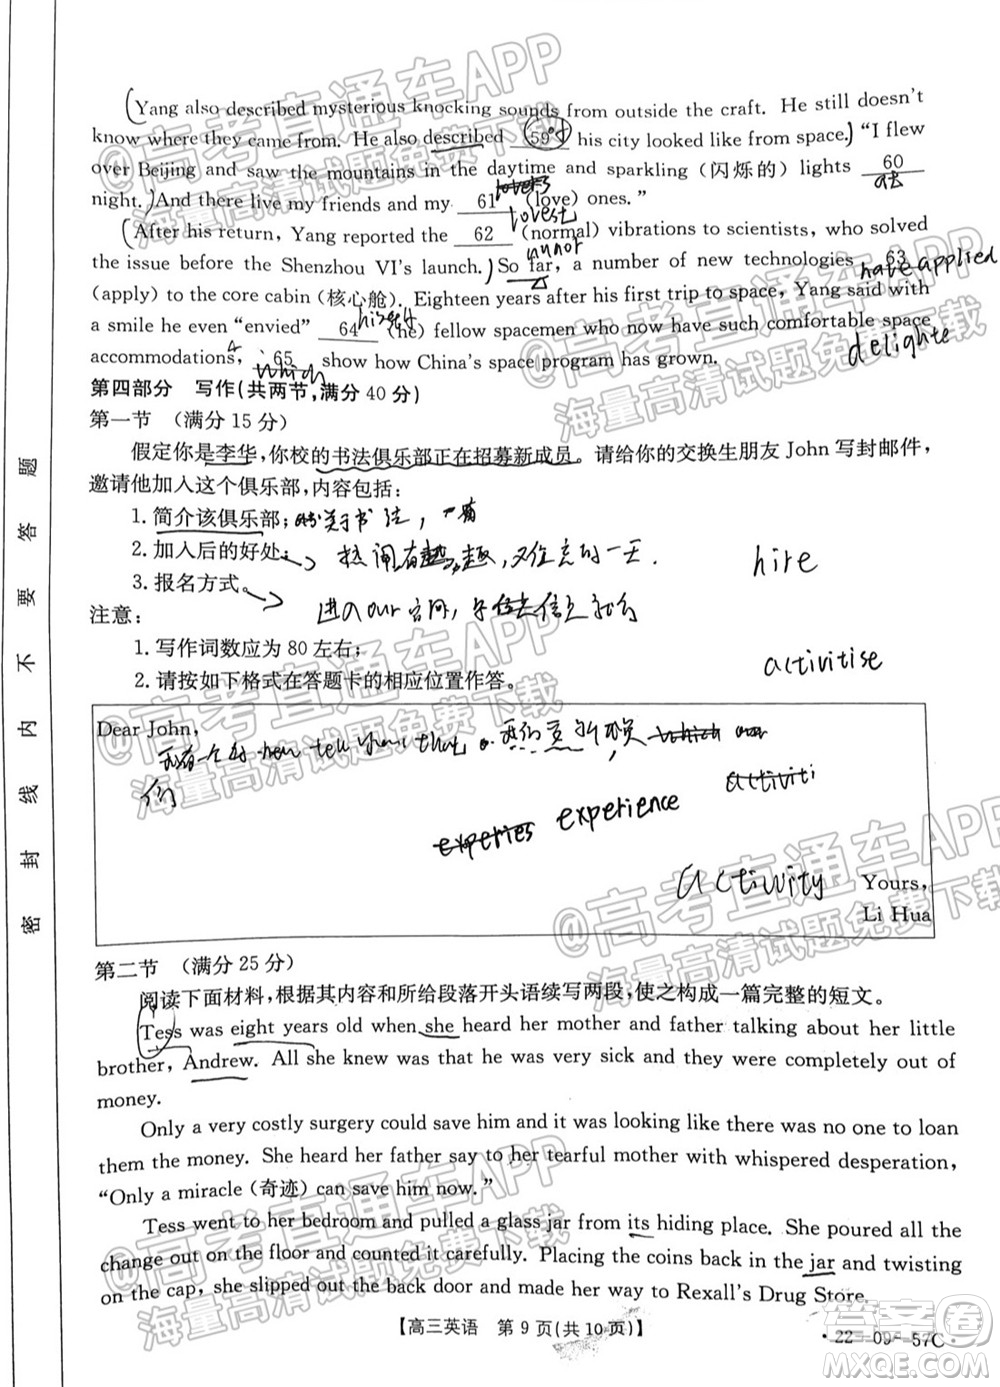 Yang also described mysterious knocking sounds from outside the craft. He still doesn't
know where they came from. He also described 59 his city looked like from space. "I flew
over Beijing and saw the mountains in the daytime and sparkling (闪烁的) lights 60
at
night. And there live my friends and my 61 (love) ones."
lovest
After his return, Yang reported the 62 (normal) vibrations to scientists, who solved
unnor
the issue before the Shenzhou VI's launch. So far, a number of new technologies 63
have applied
(apply) to the core cabin (核心舱). Eighteen years after his first trip to space, Yang said with
a smile he even "envied" 64 (he) fellow spacemen who now have such comfortable space
accommodations, 65 show how China's space program has grown.
which
delighte
第四部分 写作(共两节,满分40分)
第一节 (满分15分)
假定你是李华,你校的书法俱乐部正在招募新成员。请给你的交换生朋友John写封邮件,
邀请他加入这个俱乐部,内容包括:
1. 简介该俱乐部;
2. 加入后的好处;
热闹有趣,难忘的一天.
hire
3. 报名方式。
进入our官网,
注意:
1. 写作词数应为80左右;
activitise
2. 请按如下格式在答题卡的相应位置作答。
Dear John,
tell you that
们
activiti
experies experience
activity
Yours,
Li Hua
第二节 (满分25分)
阅读下面材料,根据其内容和所给段落开头语续写两段,使之构成一篇完整的短文。
Tess was eight years old when she heard her mother and father talking about her little
brother, Andrew. All she knew was that he was very sick and they were completely out of
money.
Only a very costly surgery could save him and it was looking like there was no one to loan
them the money. She heard her father say to her tearful mother with whispered desperation,
"Only a miracle (奇迹) can save him now."
Tess went to her bedroom and pulled a glass jar from its hiding place. She poured all the
change out on the floor and counted it carefully. Placing the coins back in the jar and twisting
on the cap, she slipped out the back door and made her way to Rexall's Drug Store.
【高三英语 第9页(共10页)】
·22-09-57C·
密封线内不要答题
@高考直通车APP
海量高清试题免费下载
@高考直通车APP
海量高清试题免费下载
@高考直通车APP
海量高清试题免费下载
@高考直通车APP
海量高清试题免费下载
@高考直通车APP
海量高清试题免费下载
答案圈
MXQE.COM